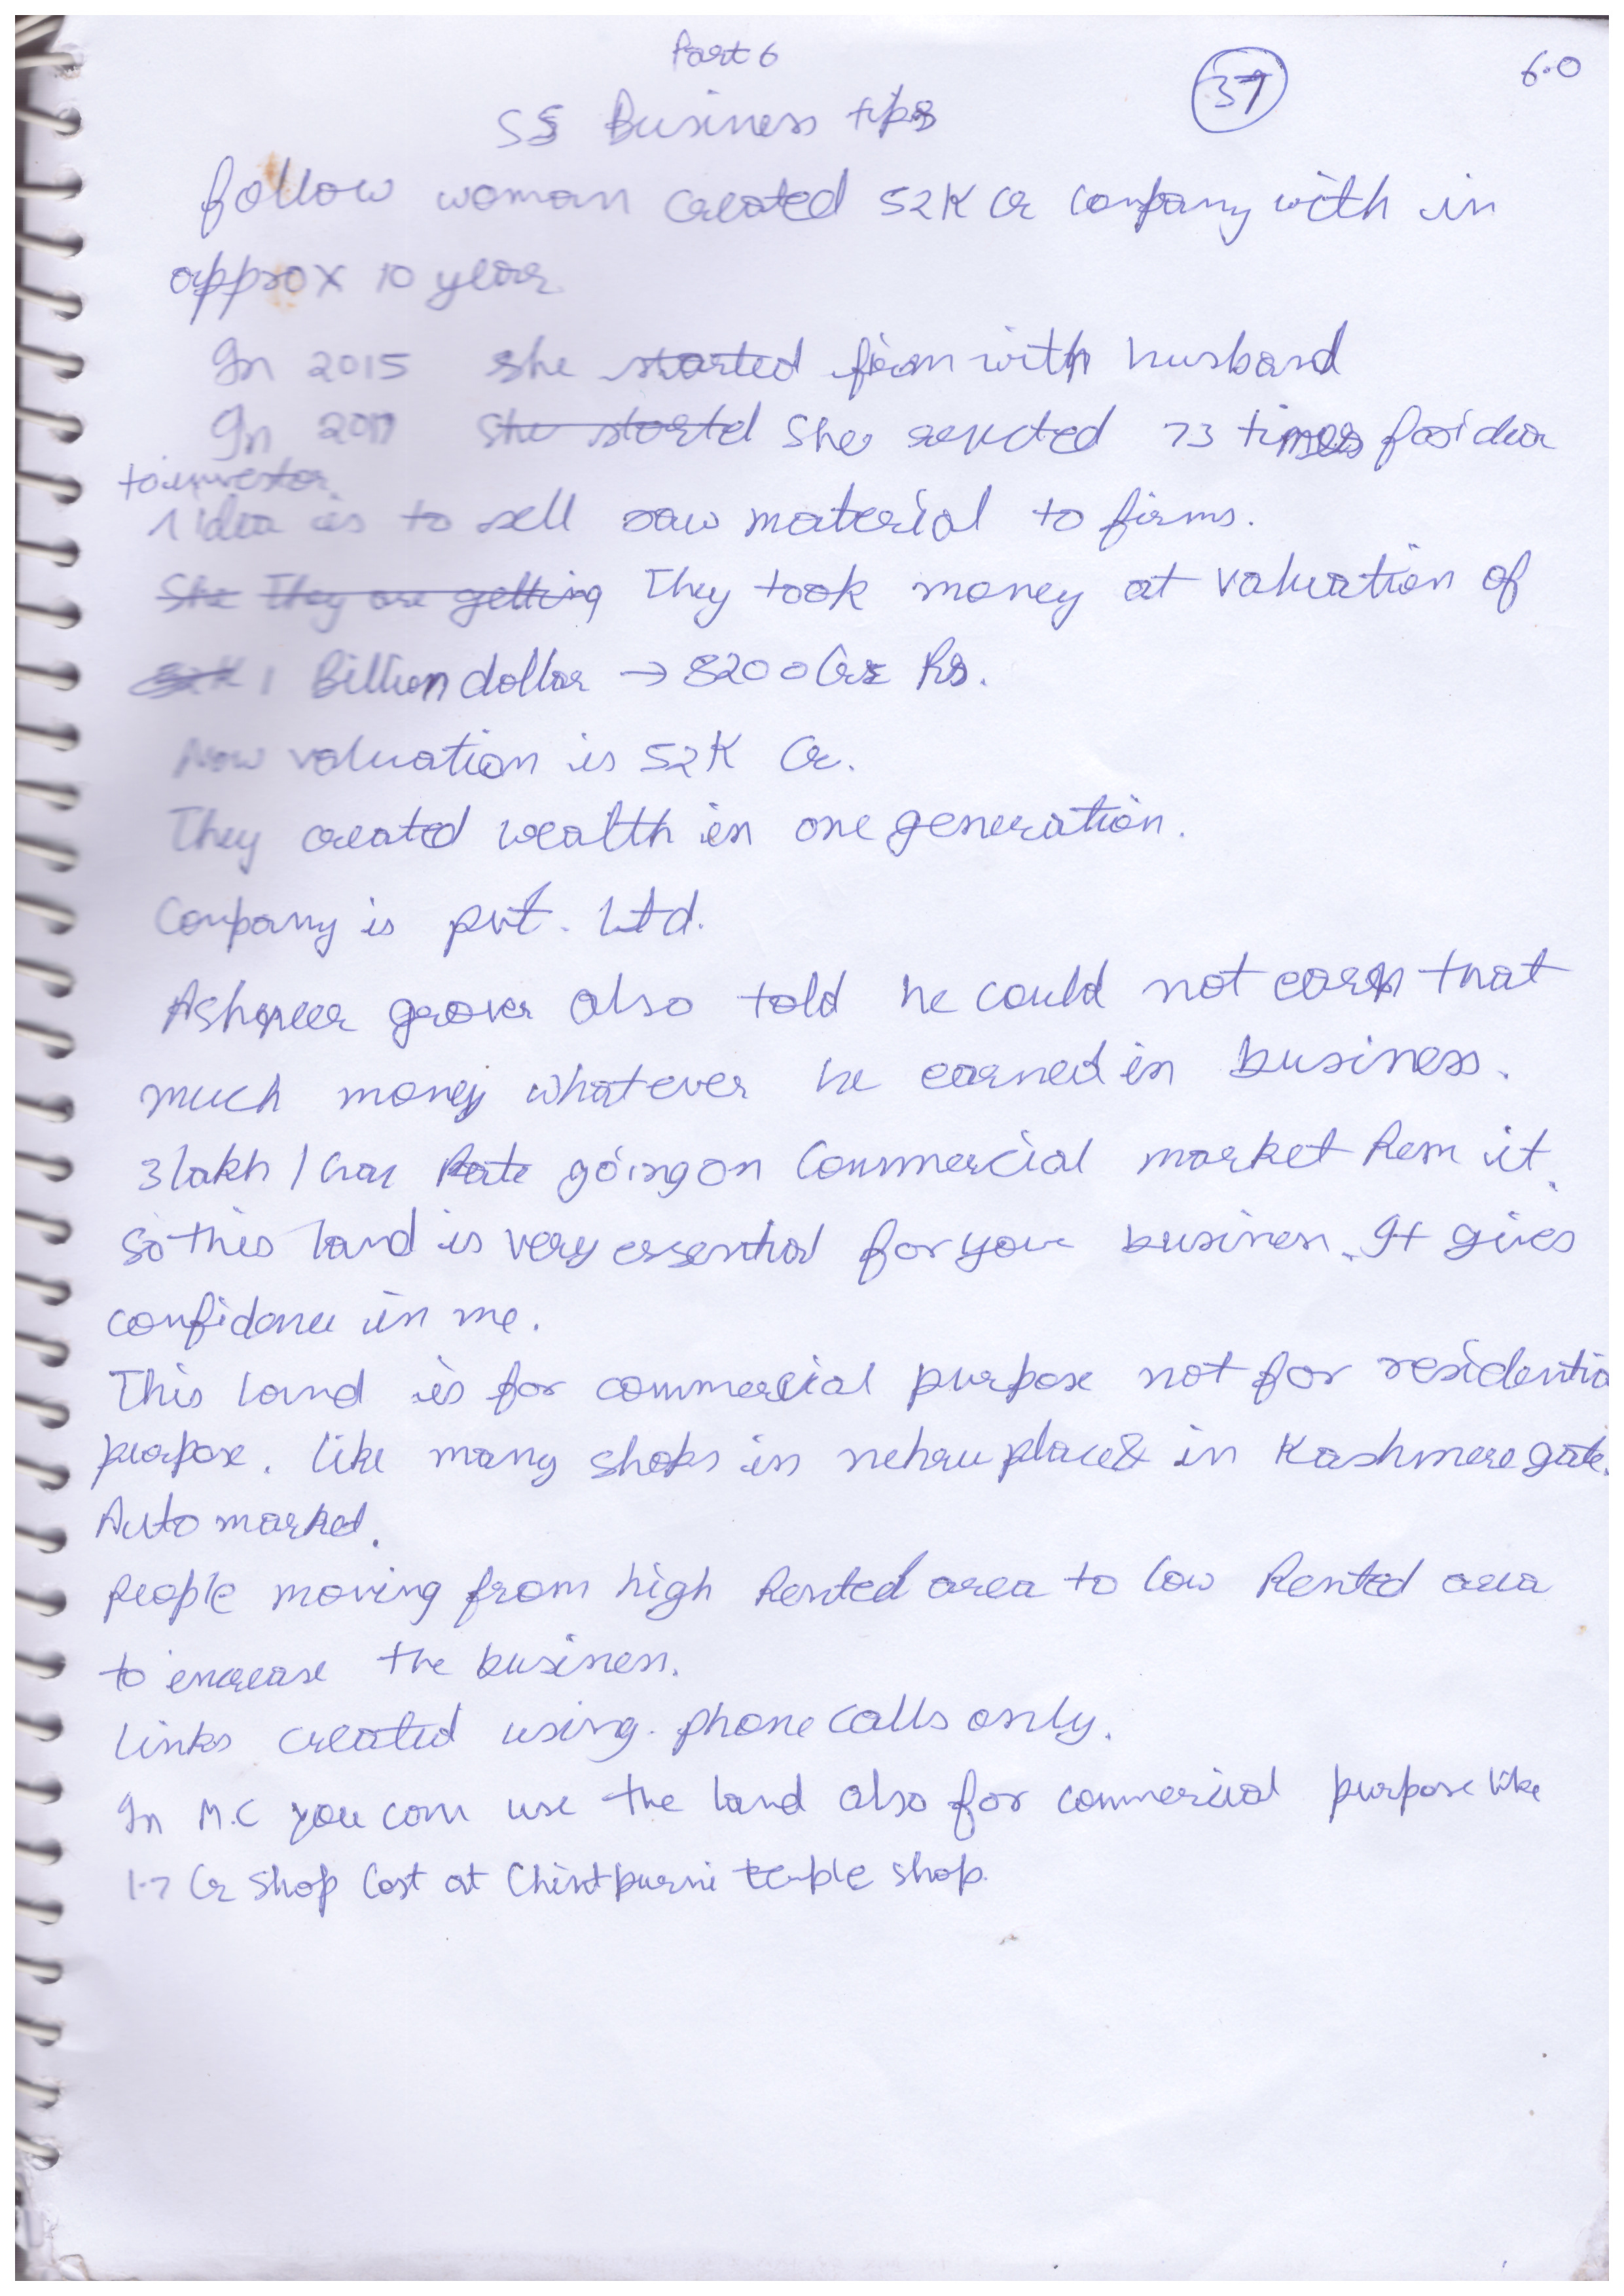 Part 6
37
6.0
SS Business tips
follow woman created 52K Cr company with in
approx 10 year
In 2015 she started firm with husband
In 2017 She started She rejected 73 times for idea
to investor
1 idea is to sell raw material to firms.
She They are getting They took money at valuation of
52K 1 Billion dollar → 8200 Crs Rs.
Now valuation is 52K Cr.
They created wealth in one generation.
Company is pvt. Ltd.
Ashneer grover also told he could not earn that
much money whatever he earned in business.
3 lakh / Gaj Rate going on Commercial market it.
So this land is very essential for your business. It gives
confidence in me.
This land is for commercial purpose not for residentia
purpose. like many shops in nehru place & in Kashmere gate.
Auto market.
people moving from high Rented area to low Rented area
to increase the business.
links created using phone calls only.
In M.C you can use the land also for commercial purpose like
1.7 Cr Shop Cost at Chintpurni temple shop.